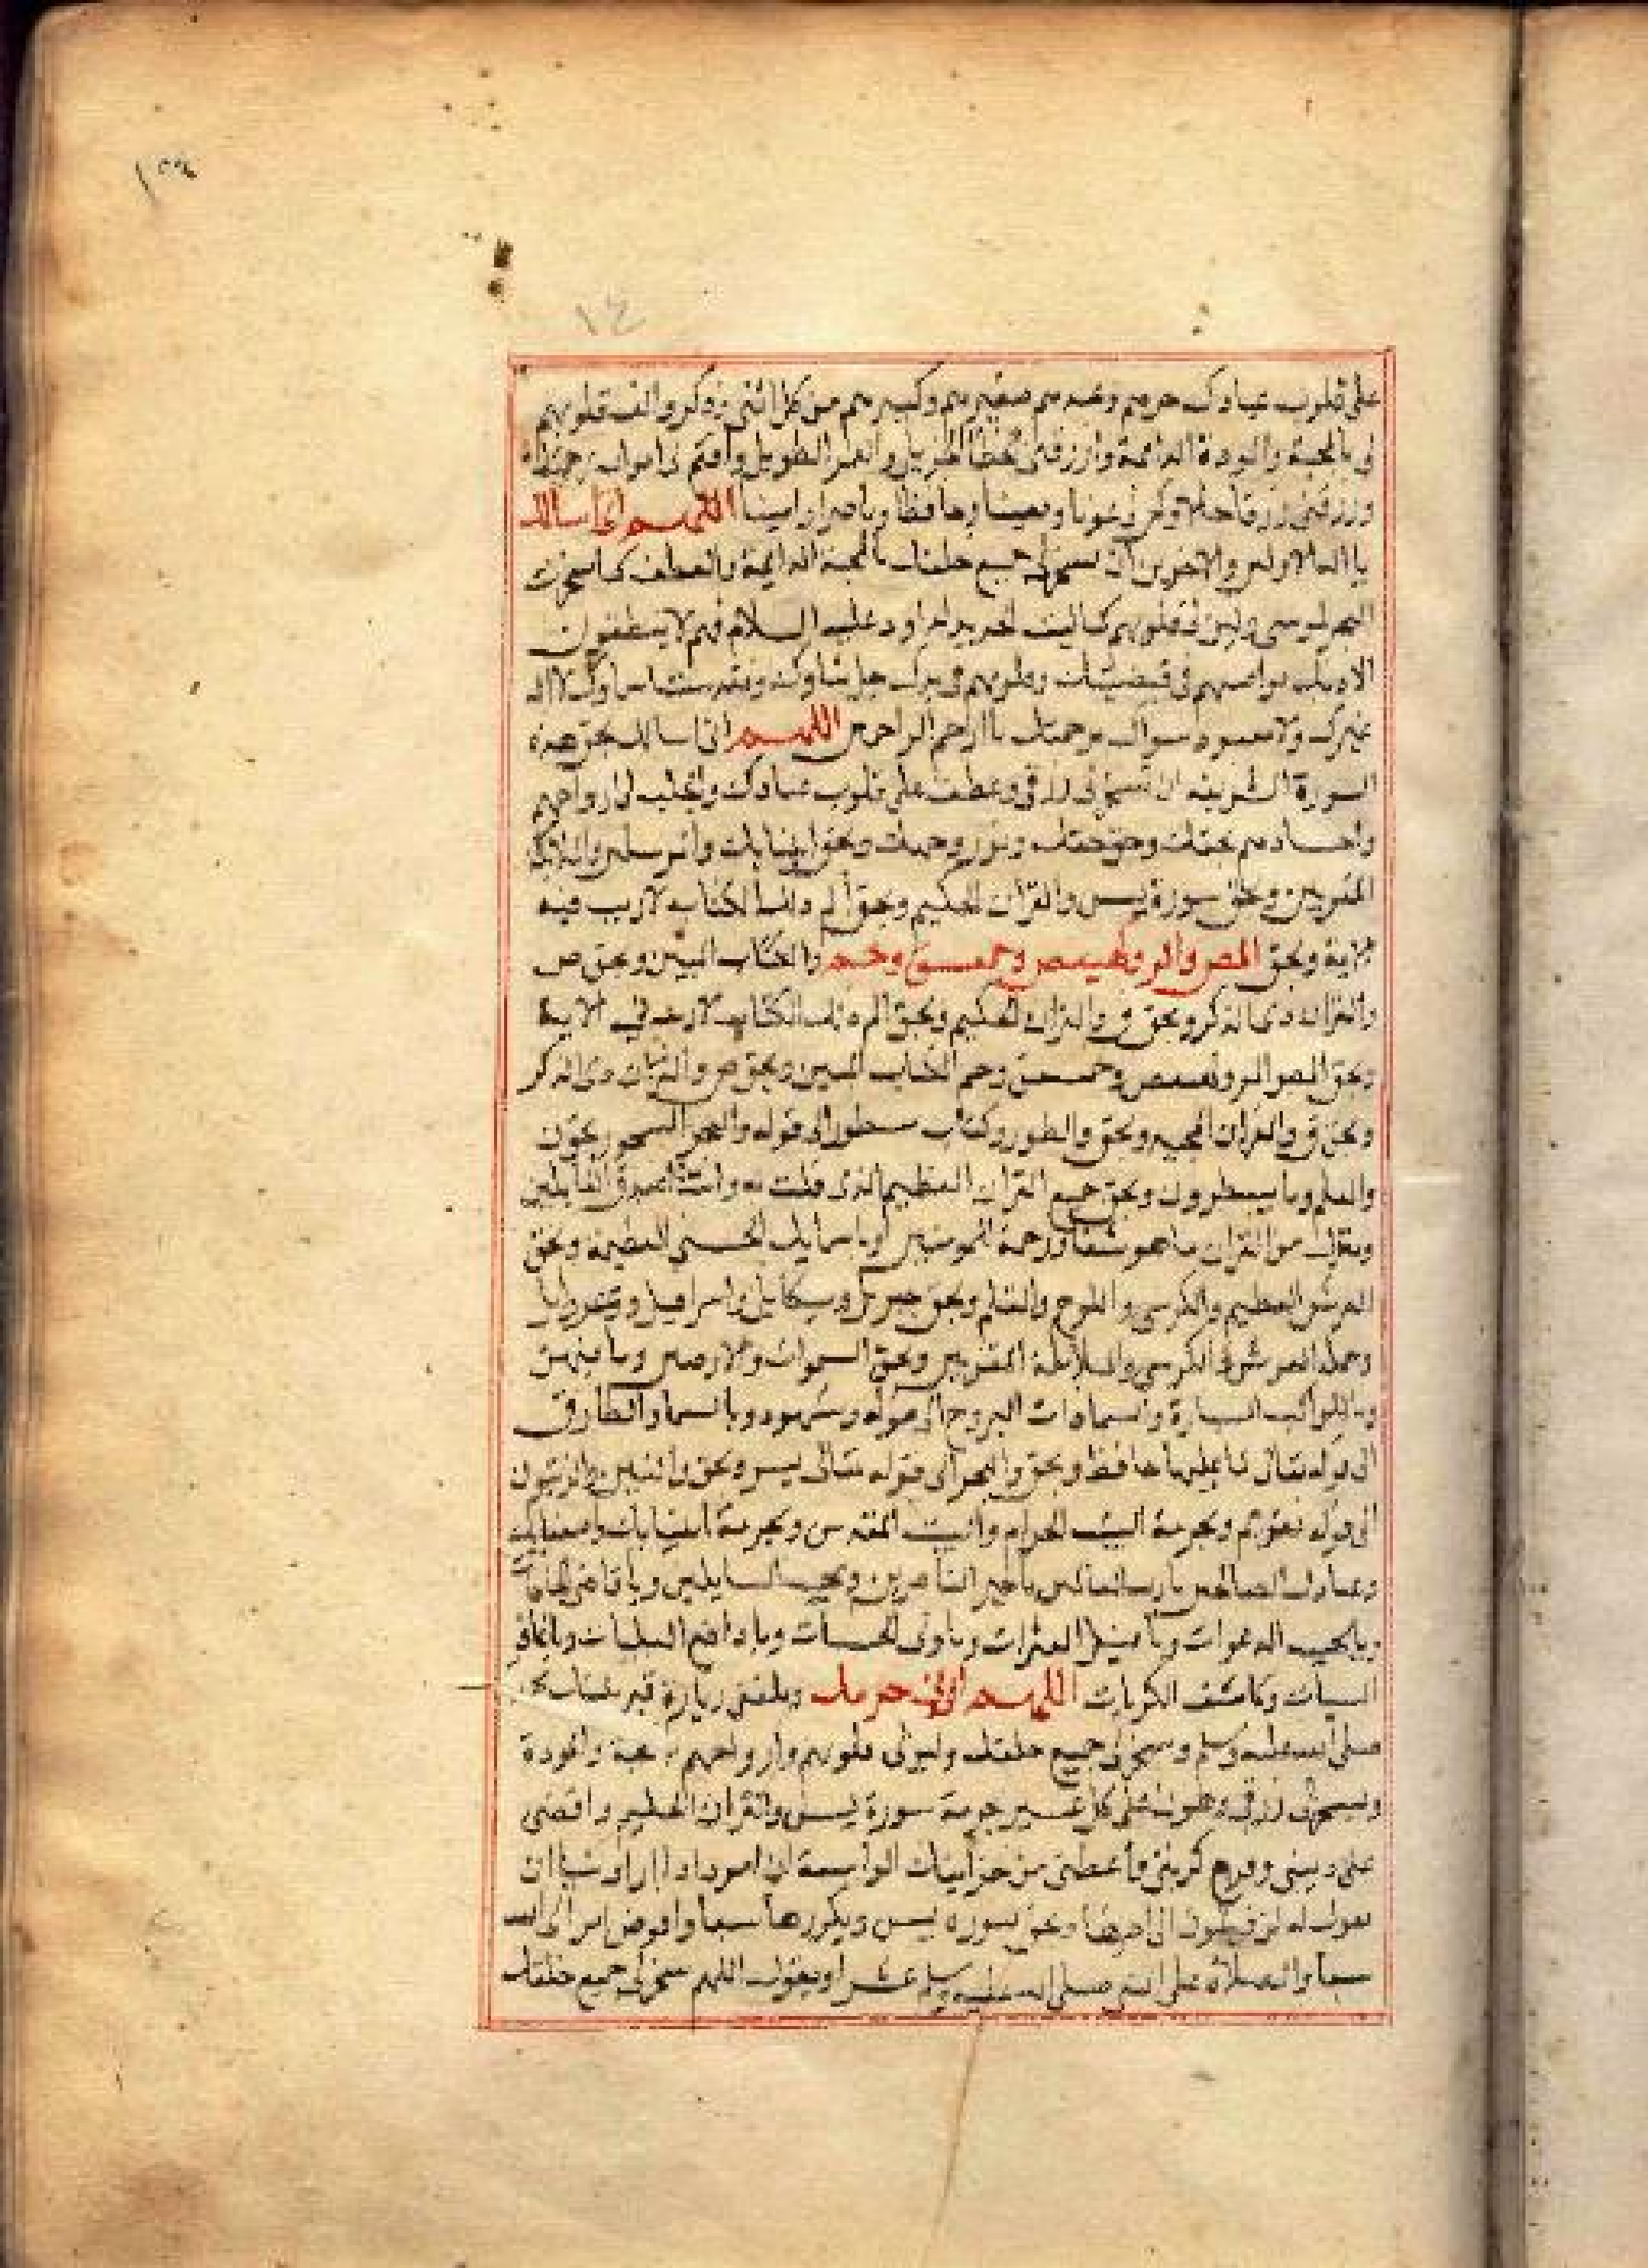 ١٤
على قلوب عبادك حرهم وعبدهم صغيرهم وكبيرهم من كل انثى وذكر والف قلوبهم
فى بالمحبة والمودة الدائمة وارزقنى الجزيل والعمر الطويل وافتح لى ابواب رحمتك
ورزقنى رزقا حلالا وكن لى عونا ومعينا وحافظا وناصرا وامينا اللهم انى اسالك
يا اله الاولين والاخرين ان تسخر لى جميع خلقك بالمحبة الدائمة والعطف كما سخرت
البحر لموسى ولين لى قلوبهم كما لينت الحديد لداود عليه السلام فهم لا ينطقون
الا باذنك نواصيهم فى قبضتك وقلوبهم فى يدك جل ثناوك وتقدست اسماوك لا اله
غيرك ولا معبود سواك برحمتك يا ارحم الراحمين اللهم انى اسالك بحق هذه
السورة الشريفة ان تسخر لى رزقى وعطف على قلوب عبادك وارواحهم
واجسادهم بحقك وحق حقك وبنور وجهك وبحق انبيايك والمرسلين والملايكة
المقربين وبحق سورة يس والقرآن الحكيم وبحق الم ذلك الكتاب لا ريب فيه
الاية وبحق المص والر وكهيعص وحمعسق وحم والكتاب المبين وبحق ص
والقران ذى الذكر وبحق ق والقران الحكيم وبحق الم ذلك الكتاب لا ريب فيه الاية
وبحق المص والر وكهيعص وحمعسق وحم الكتاب المبين وبحق ص والقران ذى الذكر
وبحق ق والقران المجيد وبحق والطور وكتاب مسطور الى قوله والبحر المسجور بحق ن
والقلم وما يسطرون وبحق جميع القران العظيم الذى قلت وانت اصدق القايلين
وننزل من القران ما هو شفا ورحمة للمومنين وباسمايك الحسنى العظيمة وبحق
العرش العظيم والكرسى واللوح والقلم وبحق جبريل وميكائيل واسرافيل وعزرائيل
وحملة العرش والكرسى والملائكة المقربين وبحق السموات والارضين وما بينهن
وبالكواكب السيارة والسماء ذات البروج الى قوله ومشهود وبالسما والطارق
الى قوله تعالى لما عليها حافظ وبحق والفجر الى قوله تعالى يسر وبحق والتين والزيتون
الى قوله تقويم وبحرمة البيت الحرام والبيت المقدس وبحرمة انبيايك واصفيايك
وعبادك الصالحين يا رب العالمين يا خير الناصرين ومجيب السايلين ويا قاضى الحاجات
ويا مجيب الدعوات ويا مقيل العثرات ويا ولى الحسنات ويا دافع البليات ويا غافر
السيات وكاشف الكربات اللهم ارزقنى حرمك وبلغنى زيارة قبر نبيك محمد
صلى الله عليه وسلم وسخر لى جميع خلقك ولين لى قلوبهم وارواحهم بالمحبة والمودة
وتسخر لى رزقى وهون على كل عسير بحرمة سورة يس والقران الحكيم واقضى
عنى دينى وفرج كربتى واعطنى من خزاينك الواسعة انما امره اذا اراد شيا ان
يقول له كن فيكون الى اخرها وبحق سورة يس ويكررها سبعا وافوض امرى الى الله
سبعا والصلاة على النبى صلى الله عليه وسلم عشرا ويقول اللهم سخر لى جميع خلقك